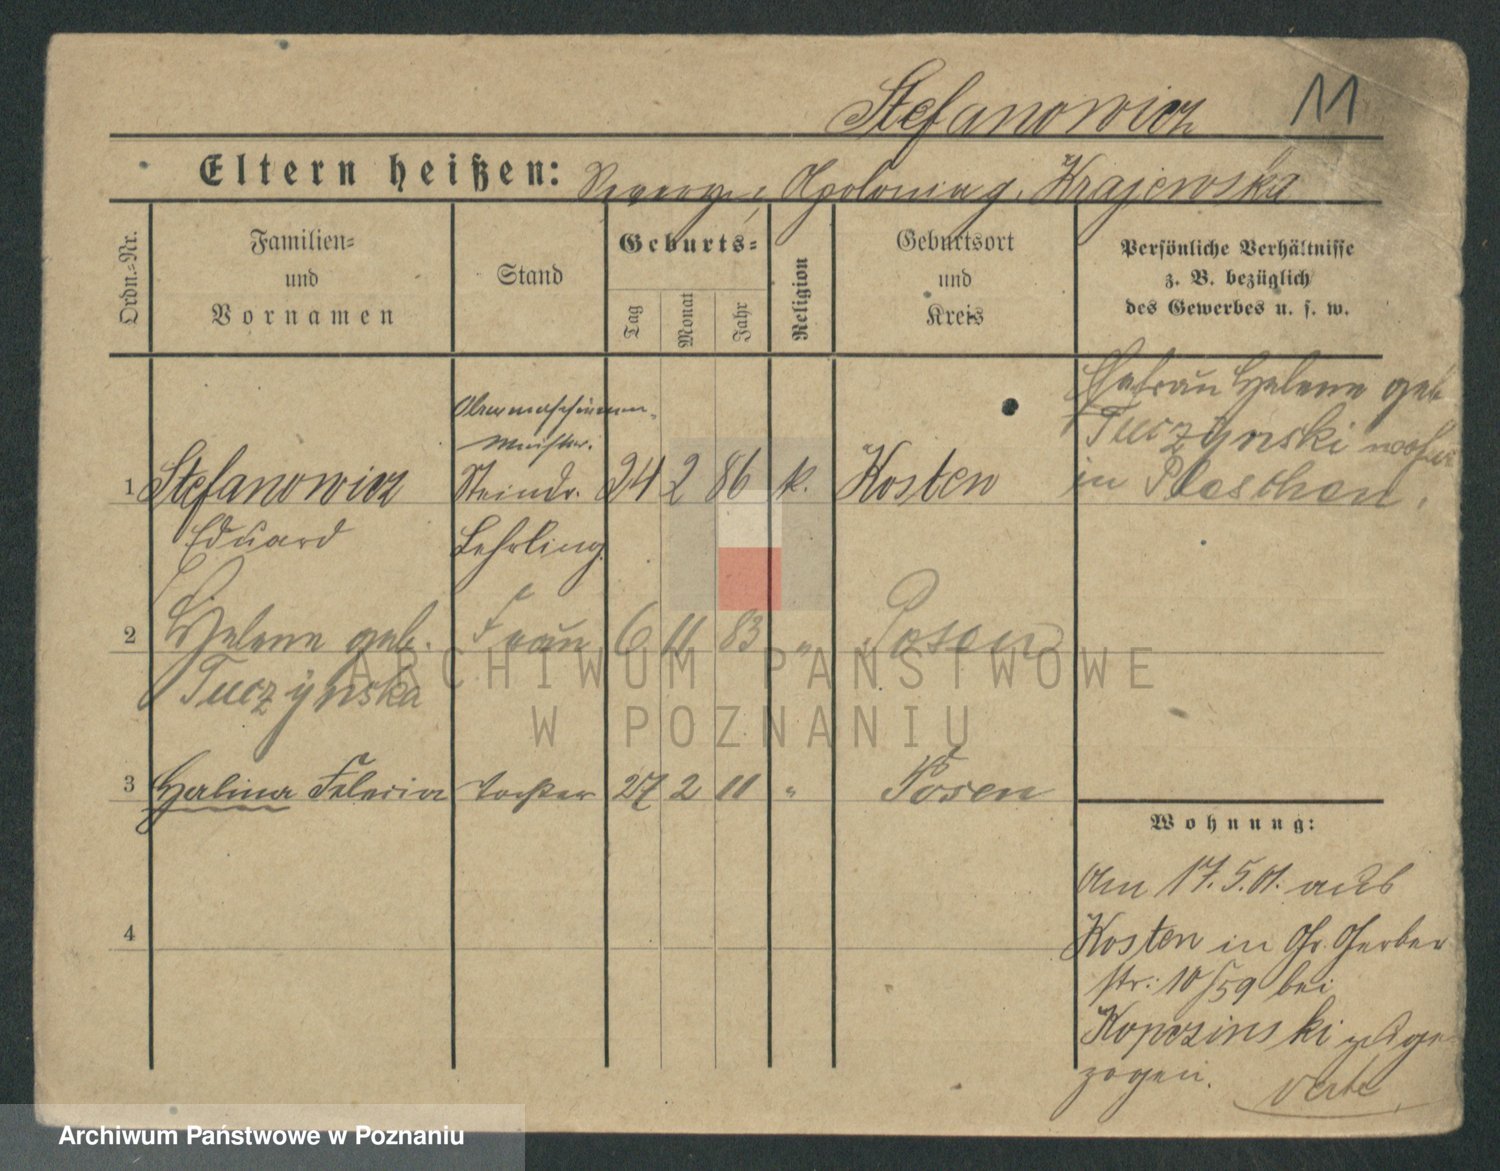 Stefanowicz 11
Eltern heißen: Apolonia g. Krajewska
Ordn.-Nr.
Familien-
und
Vornamen
Stand
Geburts-
Tag
Monat
Jahr
Religion
Geburtsort
und
Kreis
Persönliche Verhältnisse
z. B. bezüglich
des Gewerbes u. s. w.
Ehefrau Helene geb
Tuczynski
in Pleschen.
meister.
1 Stefanowicz Steindr. 24 2 86 k. Kosten
Eduard Lehrling
2 Helene geb. Frau 6 11 83 " Posen
Tuczynska
3 Halina Tochter 27 2 11 " Posen
4
Wohnung:
Am 17.5.01. aus
Kosten in Gr. Gerber
str: 10/59 bei
Kopczinski zuge-
zogen.
verte
ARCHIWUM PAŃSTWOWE
W POZNANIU
Archiwum Państwowe w Poznaniu